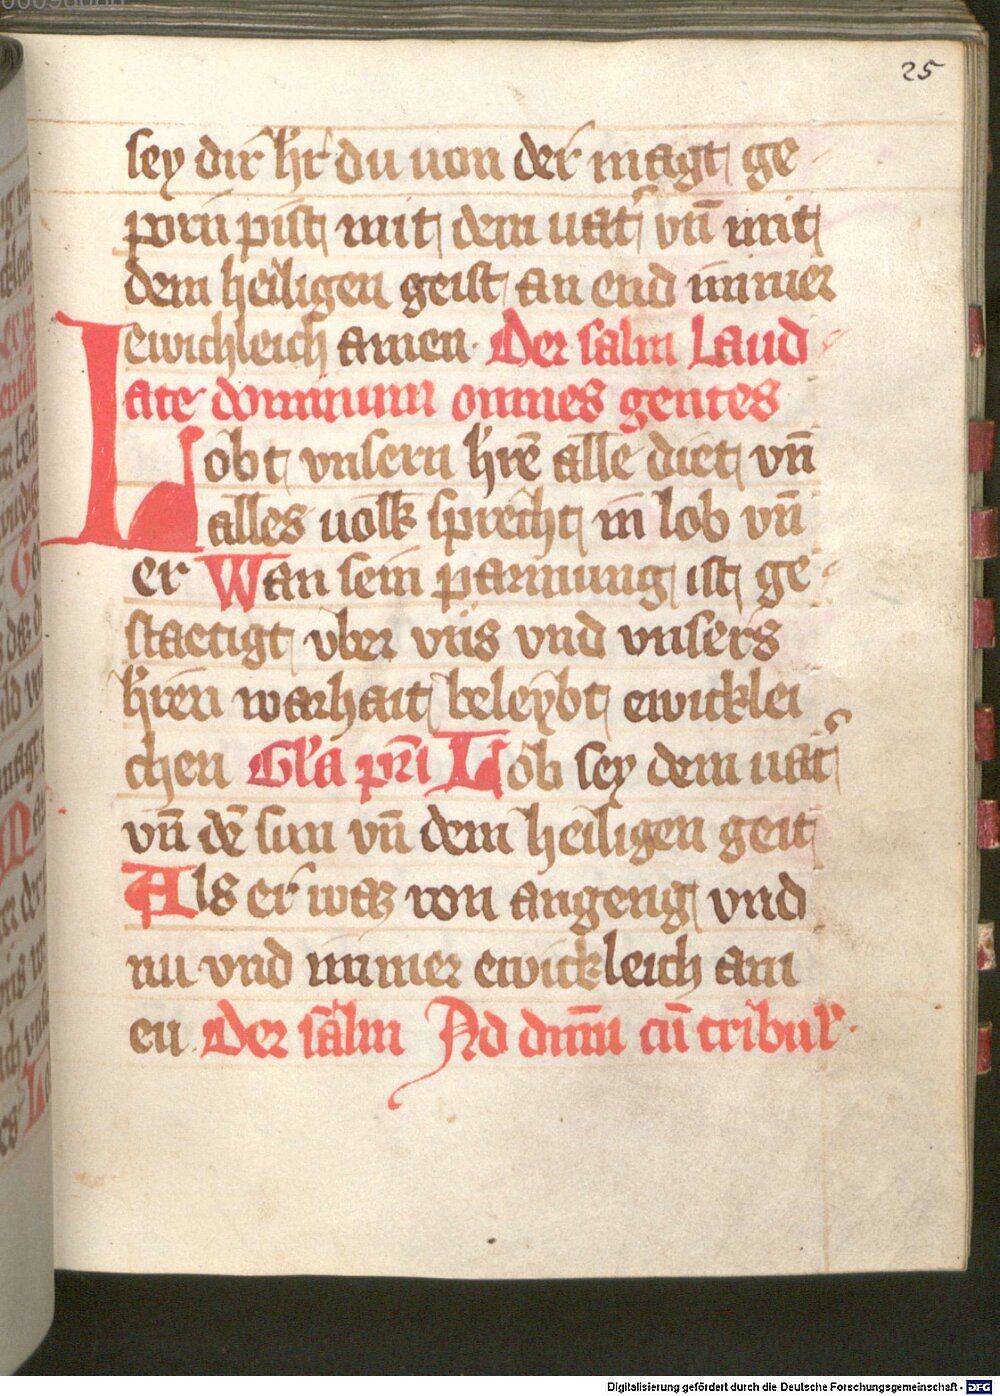 25
sey dir hr̄ du uon der magt ge
porn pist mit dem uat̓ vn̄ mit
dem heiligen geist an end immer
ewichleich amen. Der salm Laud
ate dominum omnes gentes
Lobt vnsern hr̄e alle diet vn̄
alles uolk sprecht im lob vn̄
er Wan sein parmung ist ge
staetigt vber vns vnd vnsers
hr̄en warhait beleybt ewicklei
chen Gl̄a pr̄i Lob sey dem uat̓
vn̄ dē sun vn̄ dem heiligen geit
Als er waz von angeng vnd
nu vnd immer ewickleich am
en. Der salm Ad dnm̄ cū tribul̓.
Digitalisierung gefördert durch die Deutsche Forschungsgemeinschaft - DFG